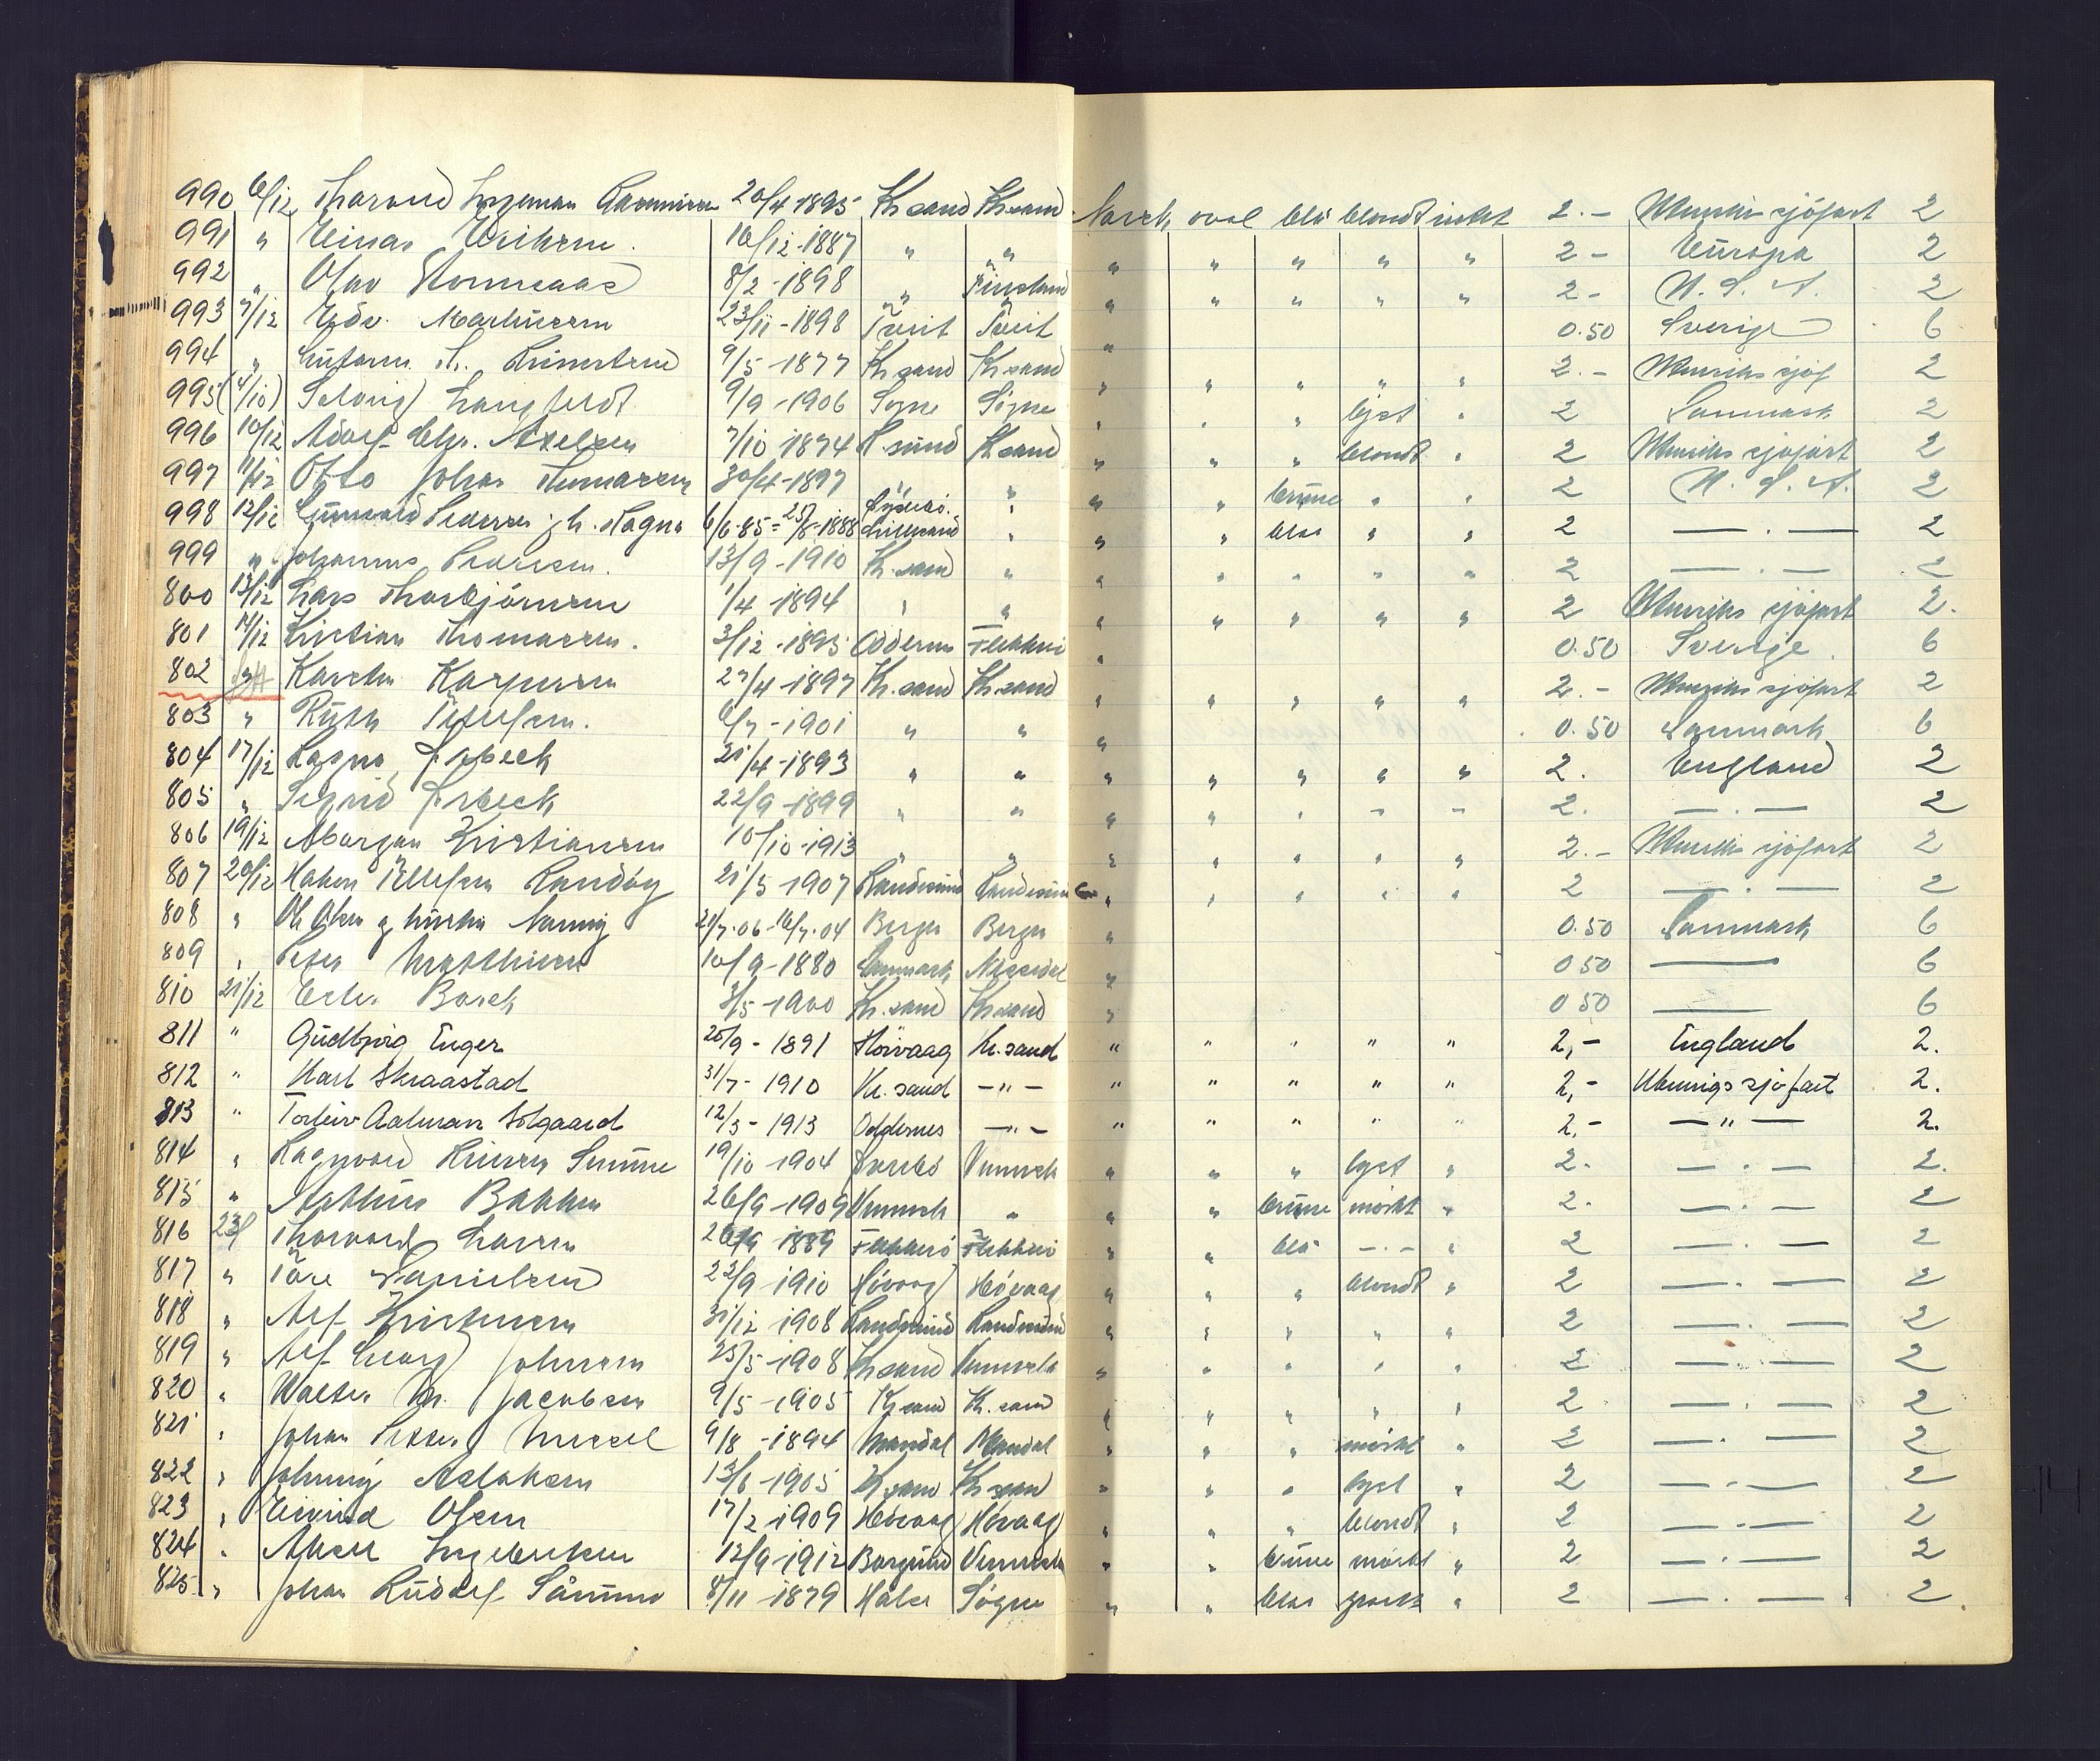 990 6/12 Tharald Ingeman 20/4-1895 Kr.sand Kr.sand Norsk oval blå blondt rett 2.- Utenriks sjøfart 2
991 " Einar Eriksen. 16/12-1887 " " " " " " " 2- Europa 2
992 " Olav 8/2-1898 " Finsland " " " " " 2- U. S. A. 2
993 7/12 Edv. Mathisen 23/11-1898 Tveit Tveit " 0.50 Sverige 6
994 " 9/5-1877 Kr.sand Kr.sand " " " " " 2.- Utenriks sjøf 2
995 (4/10) Solveig Langfeldt 9/9-1906 Søgne Søgne " " " lyst " 2 Danmark 2
996 10/12 Adolf Chr. Axelsen 7/10 1874 K.sund Kr.sand " " " blondt " 2 Utenriks sjøfart 2
997 11/12 Otto Johan Thomassen 30/4-1897 " " " " brune " " 2 U. S. A. 2
998 12/12 Gunvald Pedersen h. Ragna 6/6-85 = 25/8-1888 Lillesand " " " blaa " " 2 — . — 2
999 " Johannes Pedersen. 13/9-1910 Kr.sand " " " " " " 2 — . — 2
800 13/12 Lars Thorbjørnsen 1/4-1894 " " " " " " " 2 Utenriks sjøfart 2.
801 14/12 Kristian Thomassen. 3/12-1895 Oddernes Flekkerø " 0.50 Sverige. 6
802 " Karsten Kaspersen 27/4-1897 Kr.sand Kr.sand " " " " " 2.- Utenriks sjøfart 2
803 " Ruth Tellefsen. 6/7-1901 " " " 0.50 Danmark 6
804 17/12 Ragna Ørbeck 21/4-1893 " " " " " " " 2. England 2
805 " Sigrid Ørbeck 22/9-1899 " " " " " " " 2. — . — 2
806 19/12 Morgan Kristiansen 10/10-1913 " " " " " " " 2.- Utenriks sjøfart 2
807 20/12 Hakon Tellefsen Randøy 21/5-1907 Randesund Randesund " " " " " 2 — . — 2
808 " Ole Olsen og hustru Nanny 21/7.06-16/7.04 Bergen Bergen " 0.50 Danmark 6
809 " Peter Mathisen 10/9-1880 Danmark " 0 50 — 6
810 21/12 Borch 3/5-1900 Kr.sand Kr.sand " 0 50 — 6
811 " Gudbjørg Enger 25/9-1891 Høivaag Kr.sand " " " " " 2,- England 2.
812 " Karl Skraastad 31/7-1910 Kr.sand -"- " " " " " 2,- Utenrigs sjøfart 2.
813 " Torleiv Aatman Solgaard 12/3-1913 Oddernes -"- " " " " " 2.- — " — 2.
814 " Ragnvald 19/10-1904 Øvrebø Vennesla " " " lyst " 2. — . — 2.
815 " Mathias Bakken 26/9-1909 Vennesla " " " brune mørkt " 2. — . — 2
816 23/ Thorvald Larsen 26/9 1889 Flekkerø Flekkerø " " blå -.- " 2 — . — 2
817 " Tore Danielsen 22/9 1910 Høvaag Høvaag " " " blondt " 2 — . — 2
818 " Alf Kristensen 31/12 1908 Randesund Randesund " " " " " 2 — . — 2
819 " Alf Georg Johnsen 25/5-1908 Kr.sand Vennesla " " " " " 2 — . — 2
820 " Walter M. Jacobsen 9/5-1905 Kr.sand Kr.sand " " " " " 2 — . — 2
821 " Johan Petter Wessel 9/8-1894 Mandal Mandal " " " mørkt " 2 — . — 2
822 " Johnny Aslaksen 13/6-1905 Kr.sand Kr.sand " " " lyst " 2 — . — 2
823 " Eivind Olsen 17/2-1909 Høvaag Høvaag " " " blondt " 2 — . — 2
824 " Aksel Ingebriksen 12/9-1912 Borgund Vennesla " " brune mørkt " 2 — . — 2
825 " Johan Rudolf 8/11-1879 Søgne " " blaa " 2 — . — 2